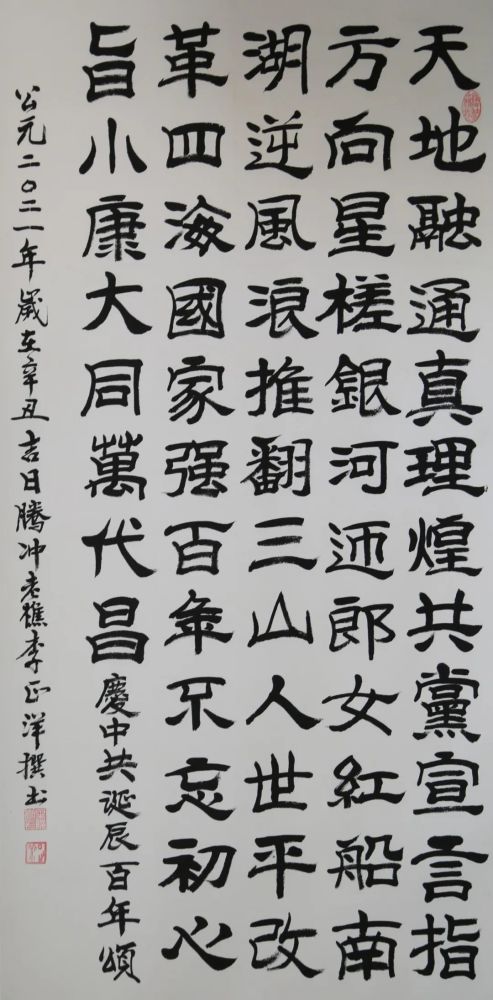 天地融通真理煌共黨宣言指
方向星槎銀河迊郎女紅船南
湖逆風浪推翻三山人世平改
革四海國家强百年不忘初心
旨小康大同萬代昌
慶中共诞辰百年頌
公元二〇二一年歲在辛丑吉日騰冲老樵李正洋撰书